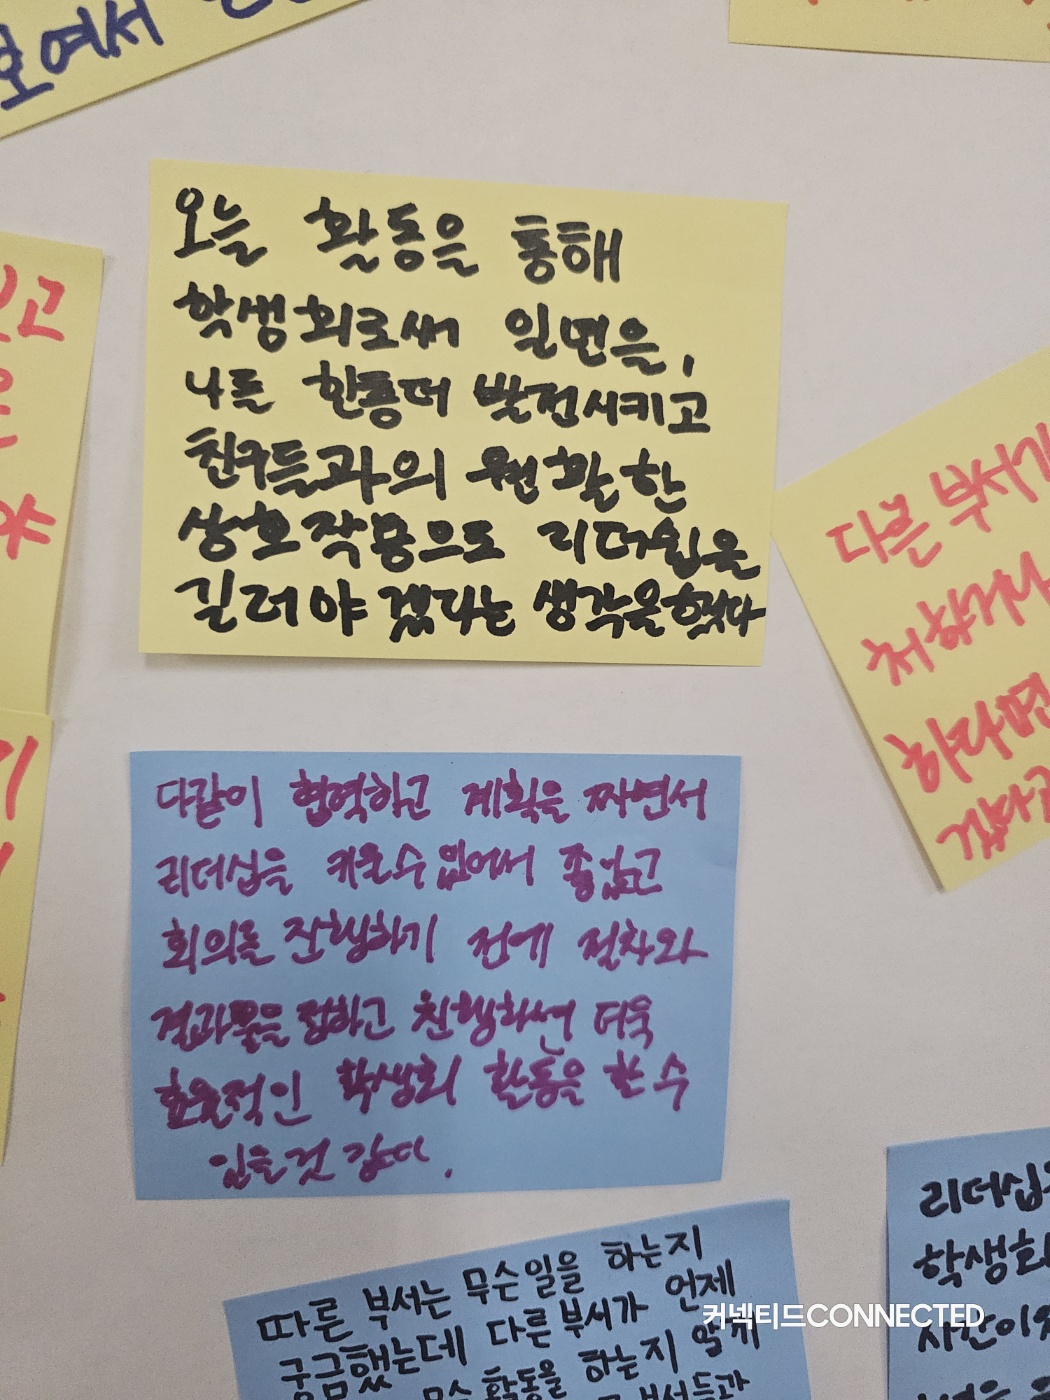 보여서
고
야
오늘 활동을 통해
학생회로써 일면을,
나를 한층더 발전시키고
친구들과의 원활한
상호작용으로 리더쉽을
길러야겠다는 생각을했다
다른 부서가
처향거나
하다면
다같이 협력하고 계획을 짜면서
리더십을 키울수있어서 좋았고
회의를 진행하기 전에 절차와
결과물을 정하고 진행하면 더욱
효율적인 학생회 활동을 할 수
있을것 같다.
따른 부서는 무슨일을 하는지
궁금했는데 다른부서가 언제
무슨 활동을 하는지 알게
부서들과
리더십
학생회
시간이
커넥티드CONNECTED